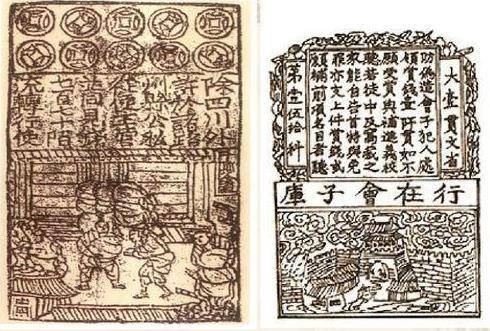 除四川外
許於諸路
州縣公私
從便主管
並同見錢
七百七十陌
流轉行使
大壹貫文省
防偽造會子犯人處
賞錢壹阡貫如不
願受賞與補進義校
尉若徒中及窩藏之
家能自告首特與免
罪亦支上件賞錢或
願補前項名目者聽
第壹伍拾料
行在會子庫